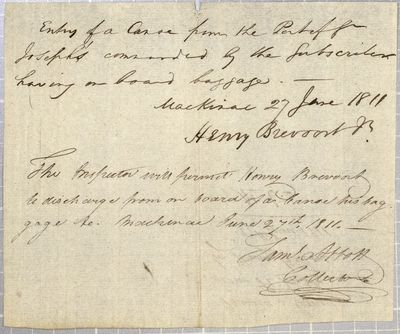 Entry of a Canoe from the Port of St
Josephs commanded by the Subscriber
having on board baggage. —
Mackinac 27 June 1811
Henry Brevoort Jr.
The Inspector will permit Henry Brevoort
to discharge from on board of a Canoe his bag
gage &c. Mackinac June 27th. 1811. —
Saml. Abbott
Collector